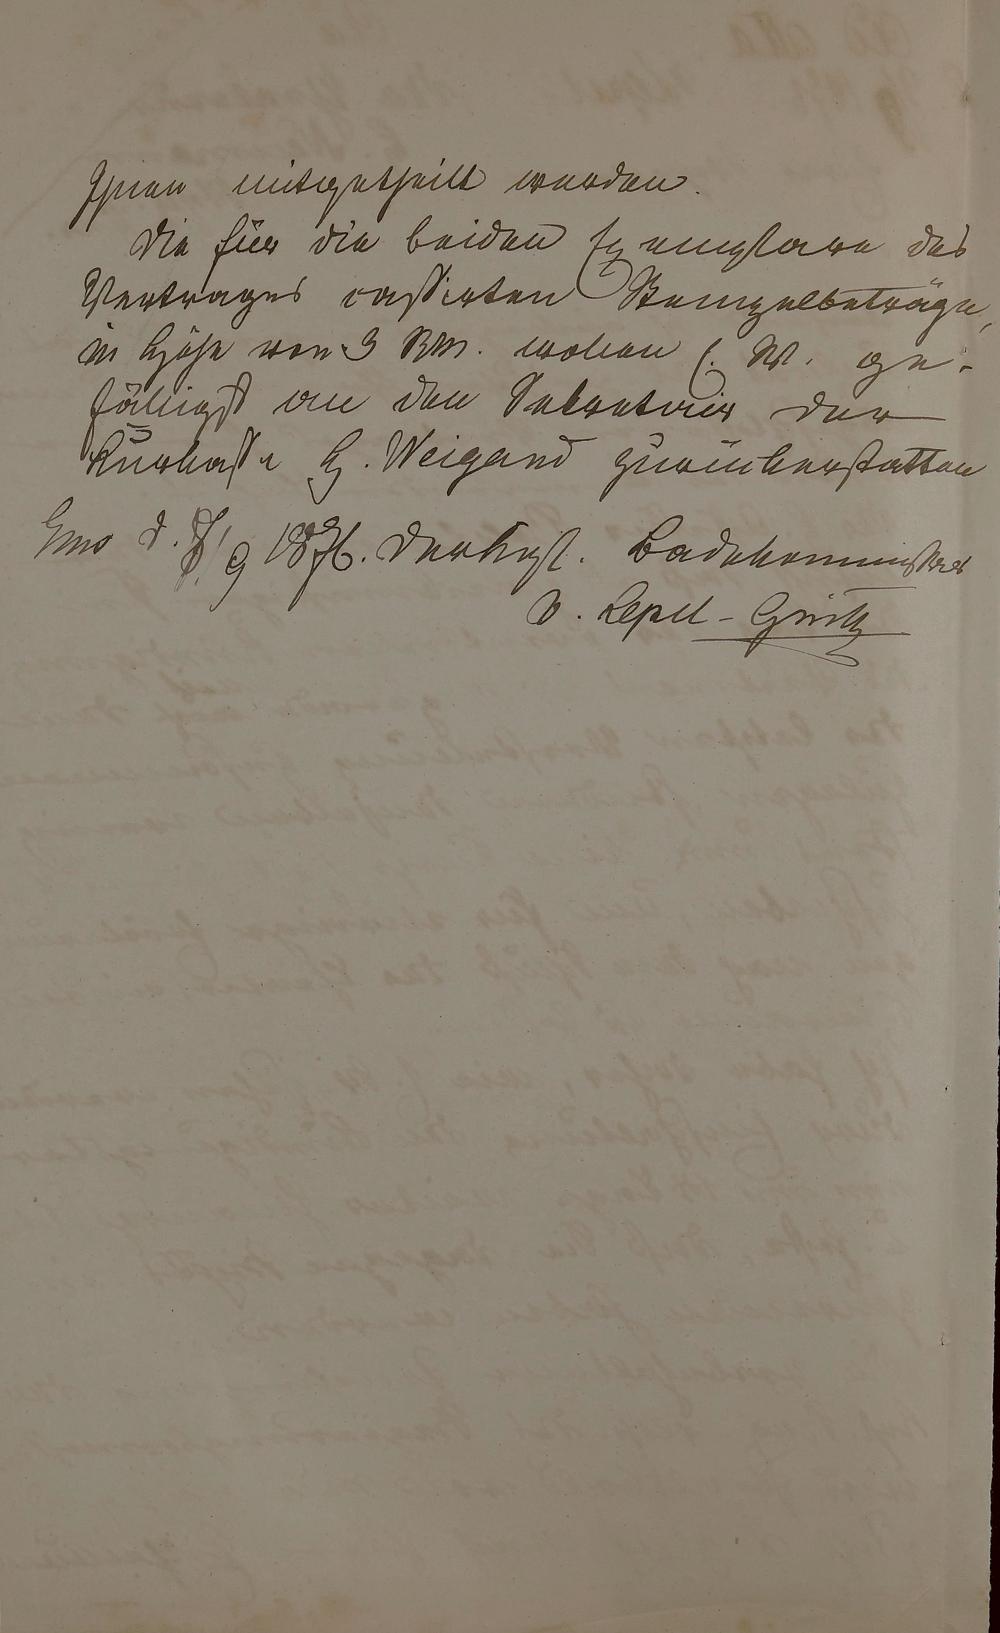 Ihnen mitgetheilt werden.
Die für die beiden Exemplare des
Vertrages cassirten Stempelbeträge,
in Höhe von 3 RM. wollen E. W. ge-
fälligst an den Sekretair der
Kurkasse H. Weigand zurückerstatten
Ems d. 9 1876. Der Kgl. Badekommissar
v. Lepel-Gnitz